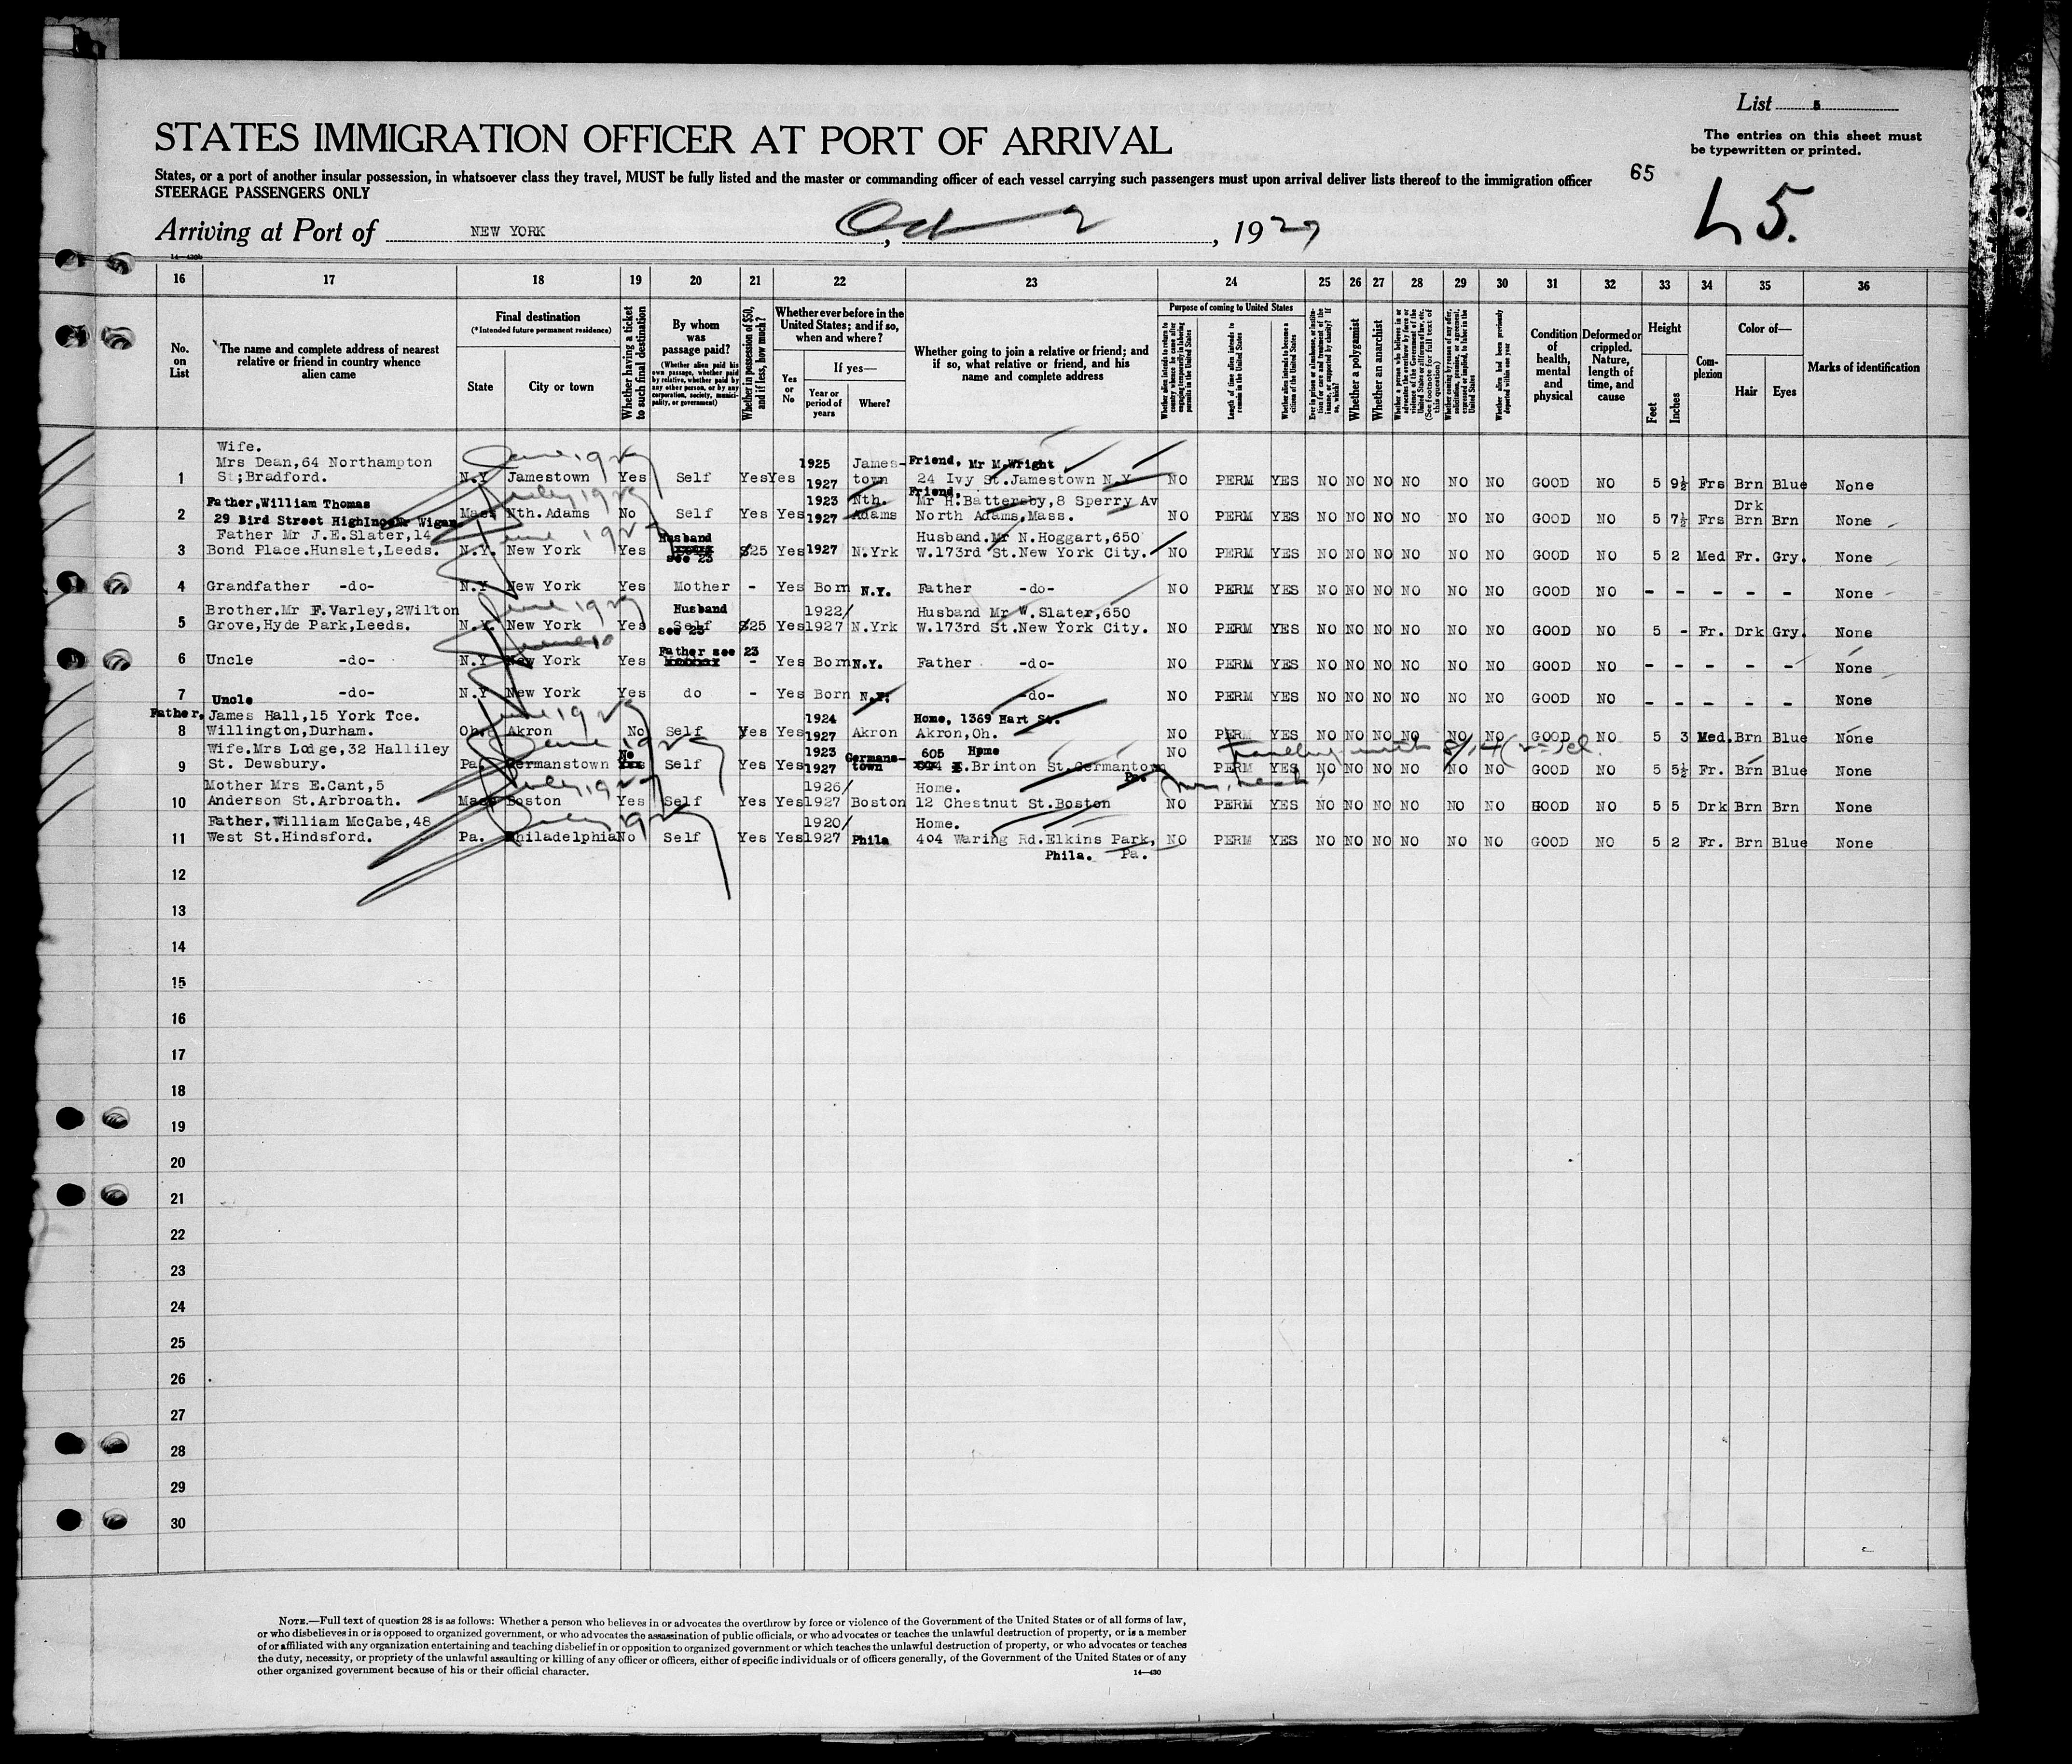 List 5
STATES IMMIGRATION OFFICER AT PORT OF ARRIVAL
The entries on this sheet must
be typewritten or printed.
States, or a port of another insular possession, in whatsoever class they travel, MUST be fully listed and the master or commanding officer of each vessel carrying such passengers must upon arrival deliver lists thereof to the immigration officer
65
STEERAGE PASSENGERS ONLY
Arriving at Port of NEW YORK, Oct 2, 1927
16 17 18 19 20 21 22 23 24 25 26 27 28 29 30 31 32 33 34 35 36
No. on List
The name and complete address of nearest relative or friend in country whence alien came
Final destination
(*Intended future permanent residence)
State
City or town
Whether having a ticket to such final destination
By whom was passage paid?
(Whether alien paid his own passage, whether paid by relative, whether paid by any other person, or by any corporation, society, municipality, or government)
Whether in possession of $50, and if less, how much?
Whether ever before in the United States; and if so, when and where?
Yes or No
If yes—
Year or period of years
Where?
Whether going to join a relative or friend; and if so, what relative or friend, and his name and complete address
Purpose of coming to United States
Length of time alien intends to remain in the United States
Whether alien intends to become a citizen of the United States
Whether a polygamist
Whether an anarchist
Condition of health, mental and physical
Deformed or crippled. Nature, length of time, and cause
Height
Feet
Inches
Complexion
Color of—
Hair
Eyes
Marks of identification
Wife.
Mrs Dean,64 Northampton 1925 James- Friend, Mr M.Wright
1 St;Bradford. N.Y Jamestown Yes Self Yes Yes 1927 town 24 Ivy St.Jamestown N.Y NO PERM YES NO NO NO NO NO NO GOOD NO 5 9½ Frs Brn Blue None
Father,William Thomas 1923 Nth. Friend, Mr H.Battersby,8 Sperry Av Drk
2 29 Bird Street Wigan Mass Nth.Adams No Self Yes Yes 1927 Adams North Adams,Mass. NO PERM YES NO NO NO NO NO NO GOOD NO 5 7½ Frs Brn Brn None
Father Mr J.E.Slater,14 Husband Husband.Mr N.Hoggart,650
3 Bond Place.Hunslet,Leeds. N.Y. New York Yes see 23 $25 Yes 1927 N.Yrk W.173rd St.New York City. NO PERM YES NO NO NO NO NO NO GOOD NO 5 2 Med Fr. Gry. None
4 Grandfather -do- N.Y New York Yes Mother - Yes Born N.Y. Father -do- NO PERM YES NO NO NO NO NO NO GOOD NO - - - - - None
Brother.Mr F.Varley,2Wilton Husband 1922/ Husband Mr W.Slater,650
5 Grove,Hyde Park,Leeds. N.Y. New York Yes Self see 23 $25 Yes 1927 N.Yrk W.173rd St.New York City. NO PERM YES NO NO NO NO NO NO GOOD NO 5 - Fr. Drk Gry. None
6 Uncle -do- N.Y New York Yes Father see 23 - Yes Born N.Y. Father -do- NO PERM YES NO NO NO NO NO NO GOOD NO - - - - - None
7 Uncle -do- N.Y New York Yes do - Yes Born N.Y. -do- NO PERM YES NO NO NO NO NO NO GOOD NO - - - - - None
Father, James Hall,15 York Tce. 1924 Home, 1369 Hart St.
8 Willington,Durham. Oh. Akron No Self Yes Yes 1927 Akron Akron,Oh. NO PERM YES NO NO NO NO NO NO GOOD NO 5 3 Med. Brn Blue None
Wife.Mrs Lodge,32 Halliley No 1923 Germans- 605 Home NO
9 St. Dewsbury. Pa. Germanstown Yes Self Yes Yes 1927 town E.Brinton St.Germantown Pa. PERM YES NO NO NO NO NO NO GOOD NO 5 5½ Fr. Brn Blue None
Mother Mrs E.Cant,5 1926/ Home.
10 Anderson St.Arbroath. Mass Boston Yes Self Yes Yes 1927 Boston 12 Chestnut St.Boston NO PERM YES NO NO NO NO NO NO HOOD NO 5 5 Drk Brn Brn None
Father.William McCabe,48 1920/ Home.
11 West St.Hindsford. Pa. Philadelphia No Self Yes Yes 1927 Phila 404 Waring Rd.Elkins Park, NO PERM YES NO NO NO NO NO NO GOOD NO 5 2 Fr. Brn Blue None
Phila. Pa.
12
13
14
15
16
17
18
19
20
21
22
23
24
25
26
27
28
29
30
NOTE.—Full text of question 28 is as follows: Whether a person who believes in or advocates the overthrow by force or violence of the Government of the United States or of all forms of law,
or who disbelieves in or is opposed to organized government, or who advocates the assassination of public officials, or who advocates or teaches the unlawful destruction of property, or is a member
of or affiliated with any organization entertaining and teaching disbelief in or opposition to organized government or which teaches the unlawful destruction of property, or who advocates or teaches
the duty, necessity, or propriety of the unlawful assaulting or killing of any officer or officers, either of specific individuals or of officers generally, of the Government of the United States or of any
other organized government because of his or their official character.
14—430